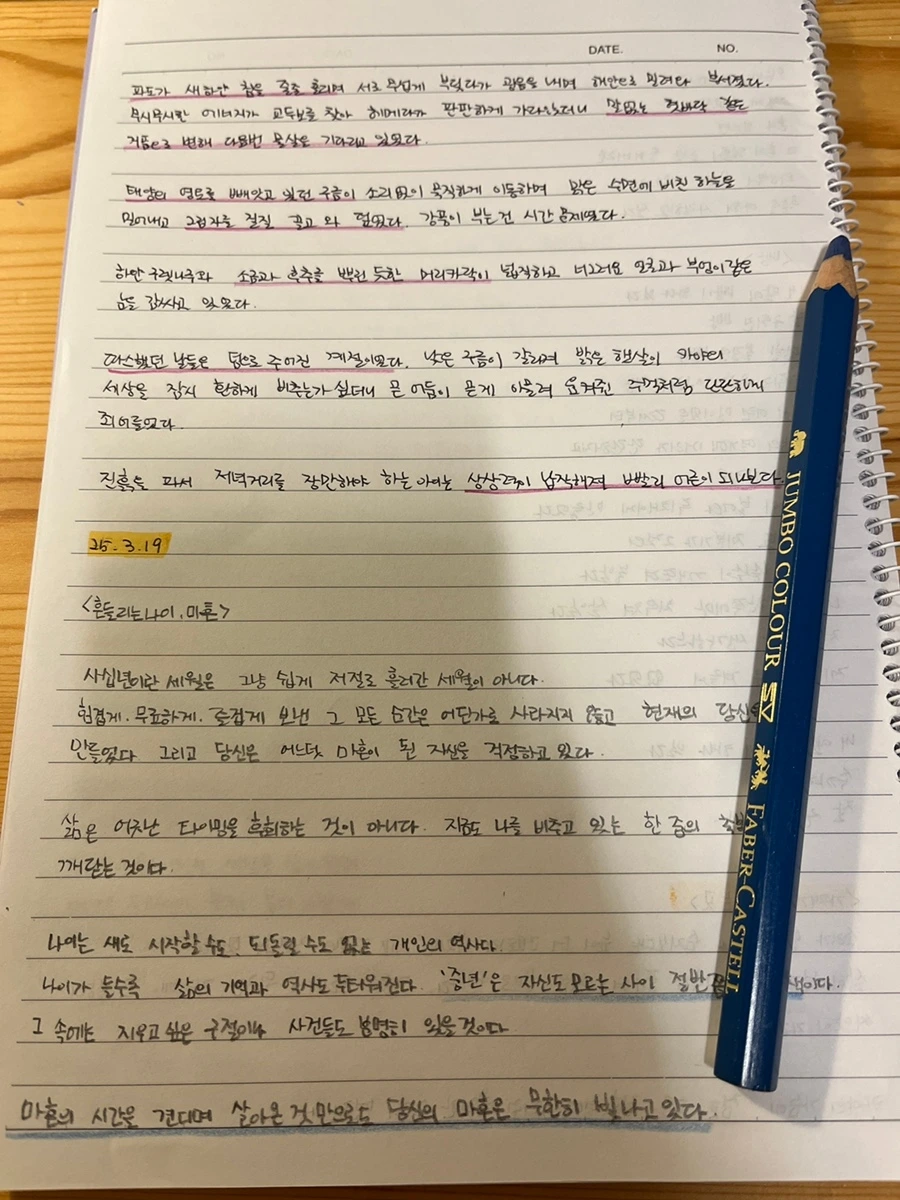 DATE. NO.
파도가 새하얀 침을 줄줄 흘리며 서로 무섭게 부딪다가 굉음을 내며 해안으로 밀려와 부서졌다.
무시무시한 에너지가 교두보를 찾아 헤메다가 판판하게 가라앉더니 말없는 혓바닥
거품으로 변해 다음번 물살을 기다리고 있었다.
태양의 영토를 빼앗고 있던 구름이 소리없이 묵직하게 이동하며 맑은 수면에 비친 하늘을
밀어내고 그림자를 질질 끌고 와 덮었다. 강풍이 부는건 시간 문제였다.
하얀 구렛나루와 소금과 후추를 뿌린 듯한 머리카락이 넓적하고 너그러운 얼굴과 부엉이같은
눈을 감싸고 있었다.
따스했던 날들은 덤으로 주어진 계절이었다. 낮은 구름이 갈리며 밝은 햇살이 카야의
세상을 잠시 환하게 비추는가 싶더니 곧 어둠이 한데 어울려 움켜쥔 주먹처럼 단단하게
죄어들었다.
진흙을 파서 저녁거리를 장만해야 하는 아이는 상상력이 납작해져 빨리 어른이 되나보다.
25.3.19
<흔들리는 나이, 마흔>
사십년이란 세월은 그냥 쉽게 저절로 흘러간 세월이 아니다.
힘겹게. 무료하게. 즐겁게 보낸 그 모든 순간은 어딘가로 사라지지 않고 현재의 당신을
만들었다 그리고 당신은 어느덧 마흔이 된 자신을 걱정하고 있다.
삶은 어긋난 타이밍을 후회하는 것이 아니다. 지금도 나를 비추고 있는 한 줌의
깨닫는 것이다.
나이는 새로 시작할 수도, 되돌릴 수도 없는 개인의 역사다.
나이가 들수록 삶의 기억과 역사도 두터워진다. '중년'은 자신도 모르는 사이 절반
그 속에는 지우고 싶은 구절이나 사건들도 분명히 있을 것이다
마흔의 시간을 견디며 살아온 것만으로도 당신의 마흔은 무한히 빛나고 있다.
JUMBO COLOUR FABER-CASTELL